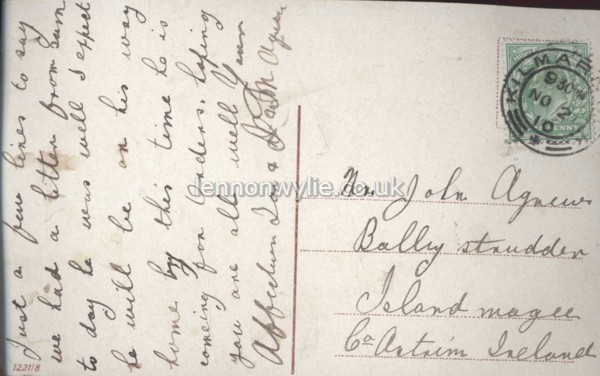 Just a few lines to say
we had a letter from Sam
to day he was well I expect
he will be on his way
home by this time he is
comeing for orders. hoping
you are all well Your
Affection Son J Agnew
Mr John Agnew
Bally strudder
Island magee
Co Antrim Ireland
KILMAR
9 30 PM
NO 2
10
PENNY
Jennonwylie.co.uk
12218